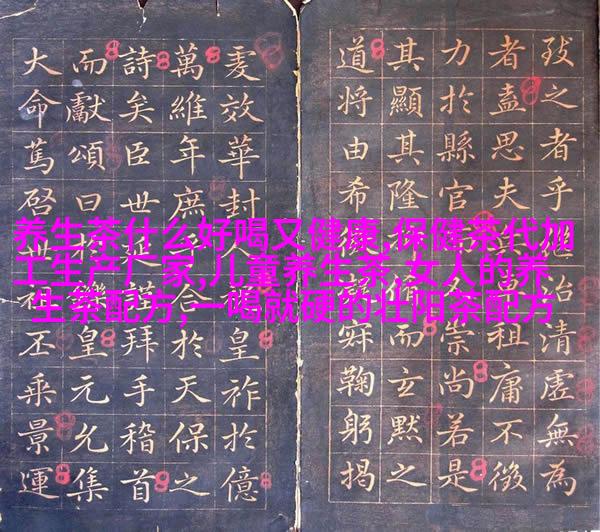 养生茶什么好喝又健康,保健茶代加
工生产厂家,儿童养生茶,女人的养
生茶配方,一喝就硬的壮阳茶配方
致之者乎治清虛無為
者盍思夫祖庸不徵
力於縣官崇尚若是
其顯其隆而玄默之
道將由希鞠躬揭
夐效華封人皇祚於億
萬維年庶合於天保之
詩矣臣世謹拜手稽首
而獻頌曰於鑠皇元允集
大命篤啓世祖丕乘景運